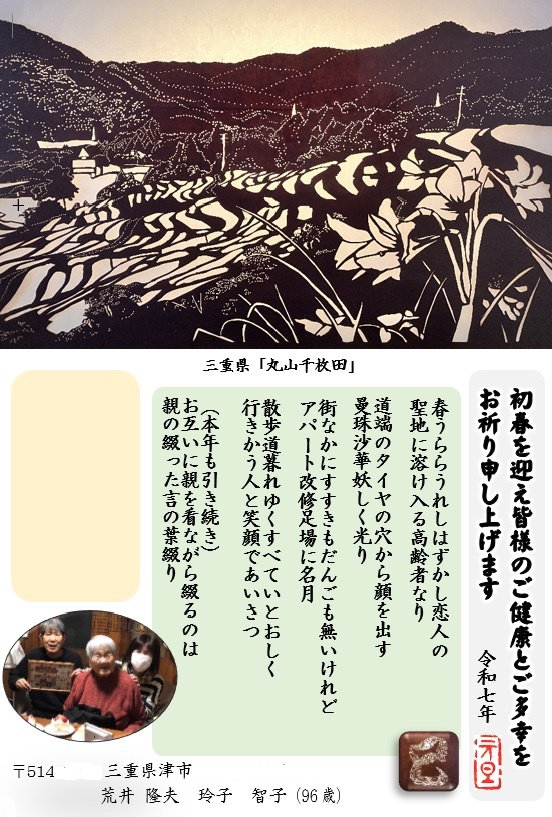 三重県「丸山千枚田」
初春を迎え皆様のご健康とご多幸を
お祈り申し上げます
令和七年
元旦
春うららうれしはずかし恋人の
聖地に溶け入る高齢者なり
道端のタイヤの穴から顔を出す
曼珠沙華妖しく光り
街なかにすすきもだんごも無いけれど
アパート改修足場に名月
散歩道暮れゆくすべていとおしく
行きかう人と笑顔であいさつ
(本年も引き続き)
お互いに親を看ながら綴るのは
親の綴った言の葉綴り
〒514 三重県津市
荒井 隆夫 玲子 智子 (96歳)